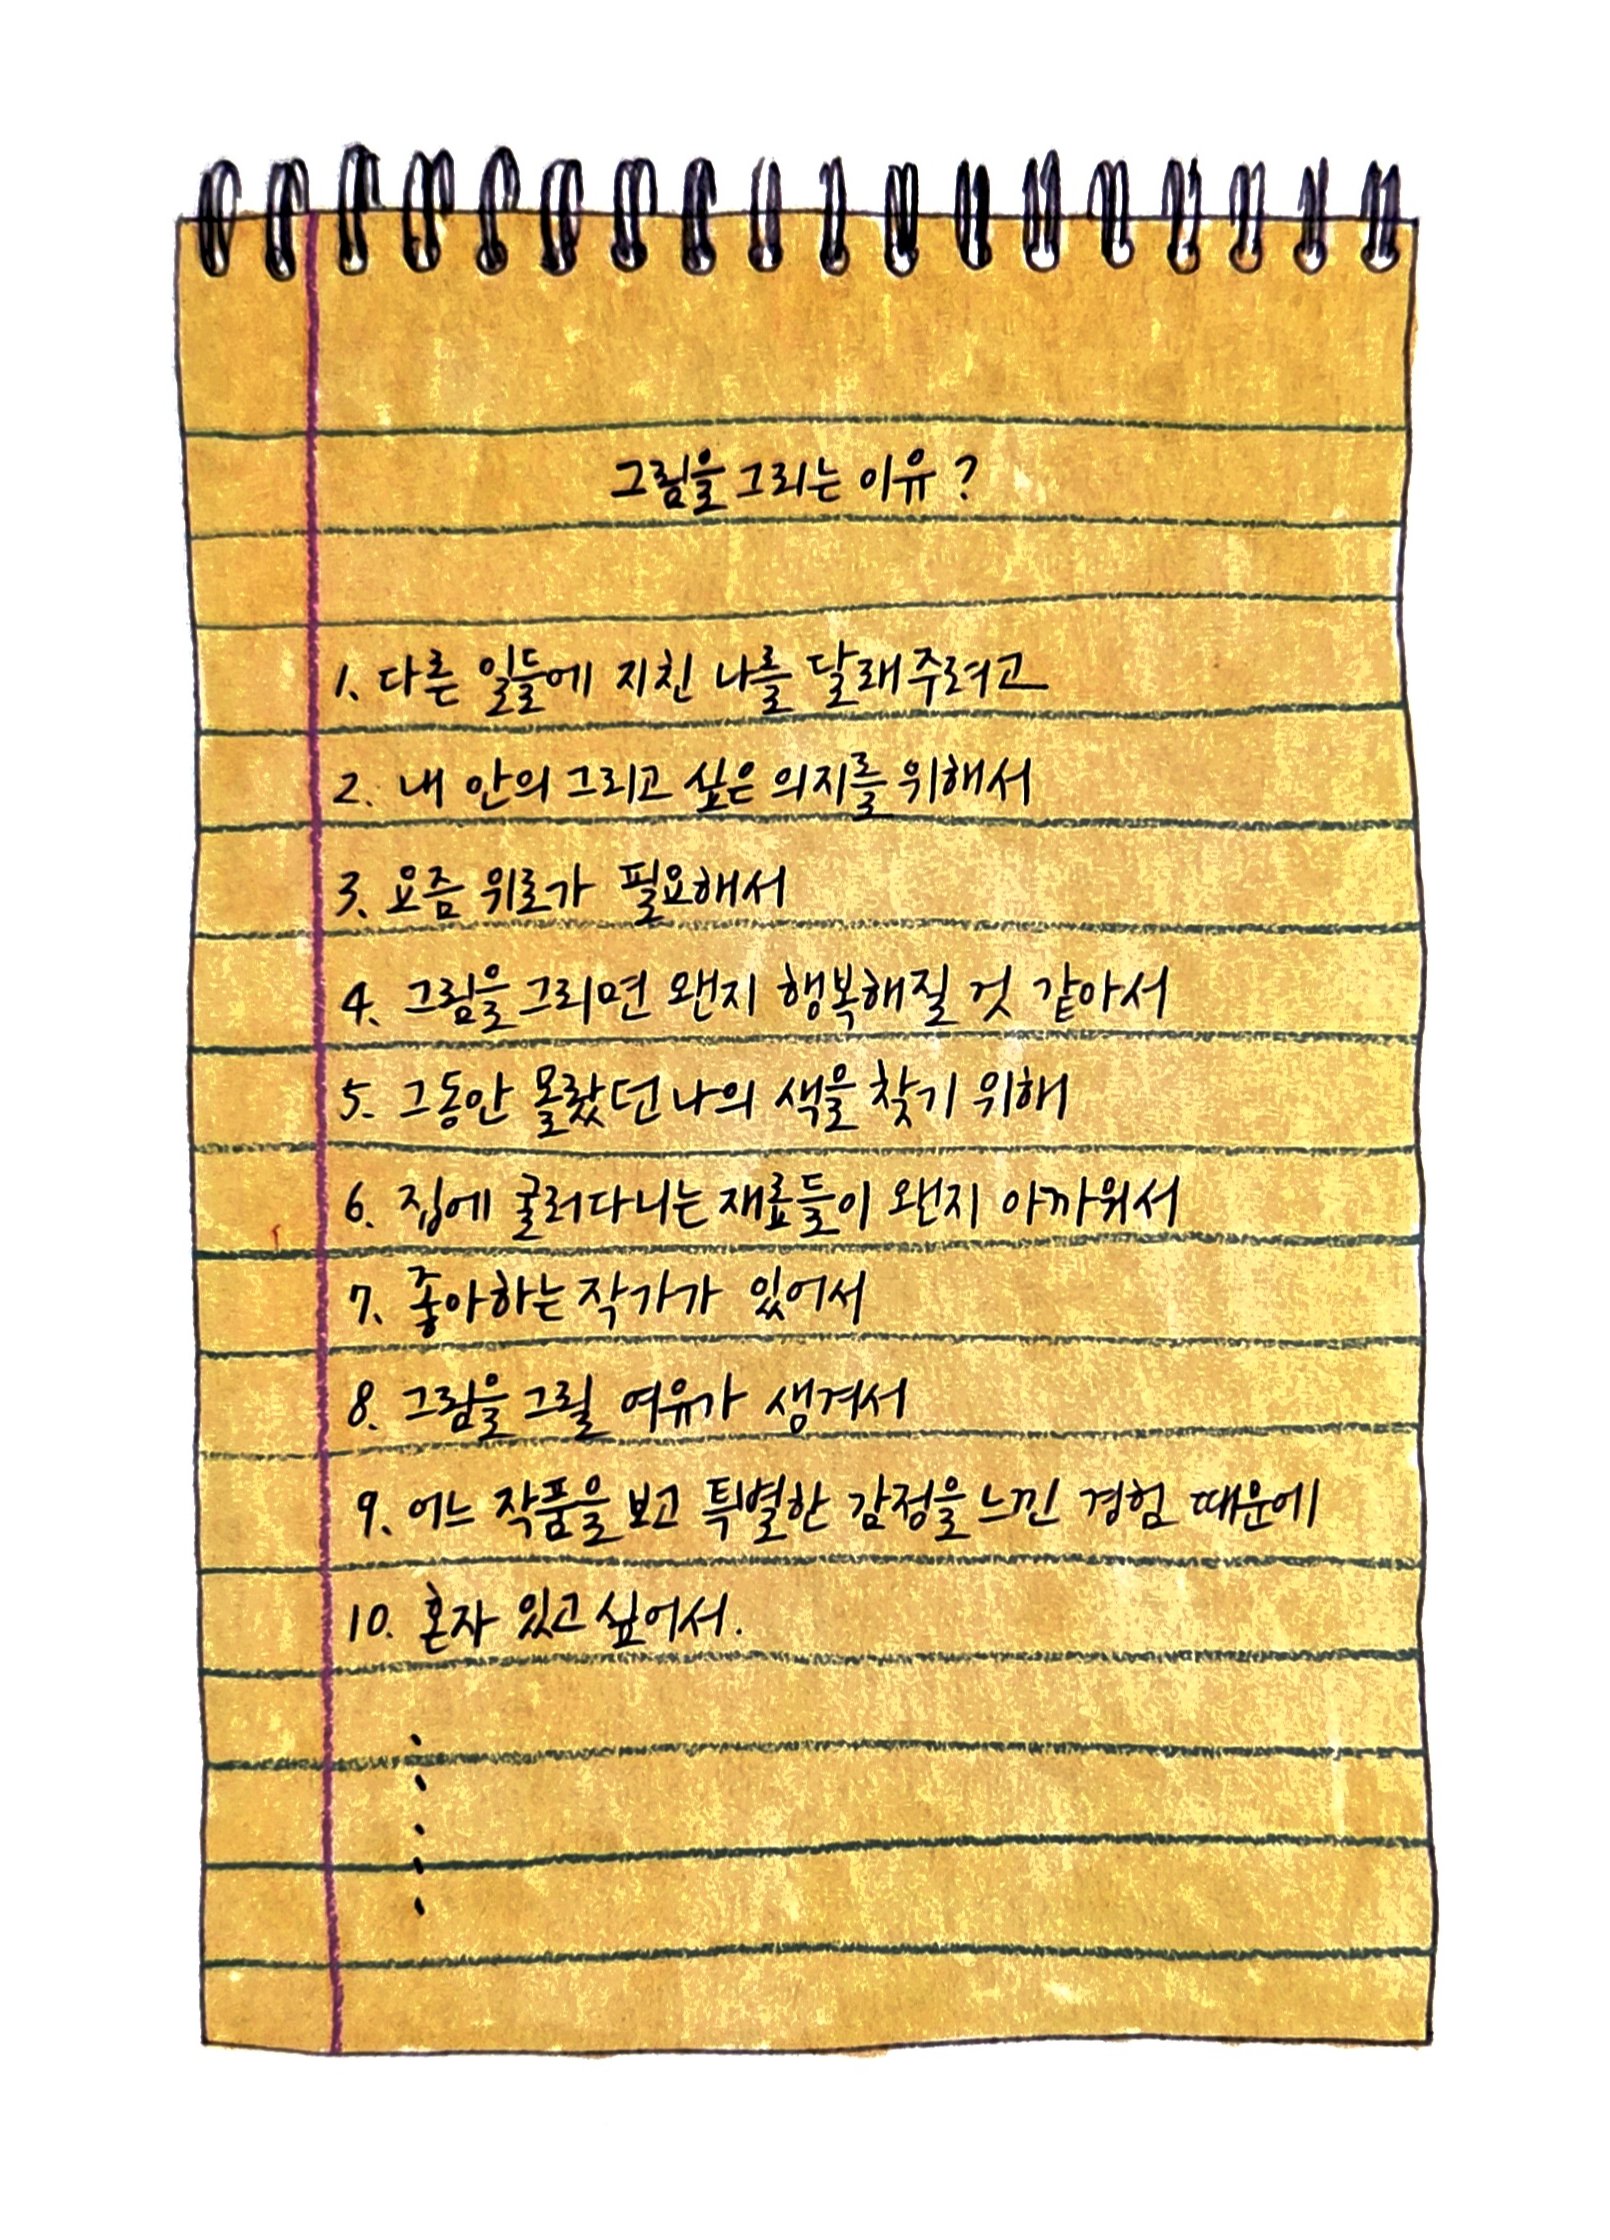 그림을 그리는 이유?
1. 다른 일들에 지친 나를 달래주려고
2. 내 안의 그리고 싶은 의지를 위해서
3. 요즘 위로가 필요해서
4. 그림을 그리면 왠지 행복해질 것 같아서
5. 그동안 몰랐던 나의 색을 찾기 위해
6. 집에 굴러다니는 재료들이 왠지 아까워서
7. 좋아하는 작가가 있어서
8. 그림을 그릴 여유가 생겨서
9. 어느 작품을 보고 특별한 감정을 느낀 경험 때문에
10. 혼자 있고 싶어서.